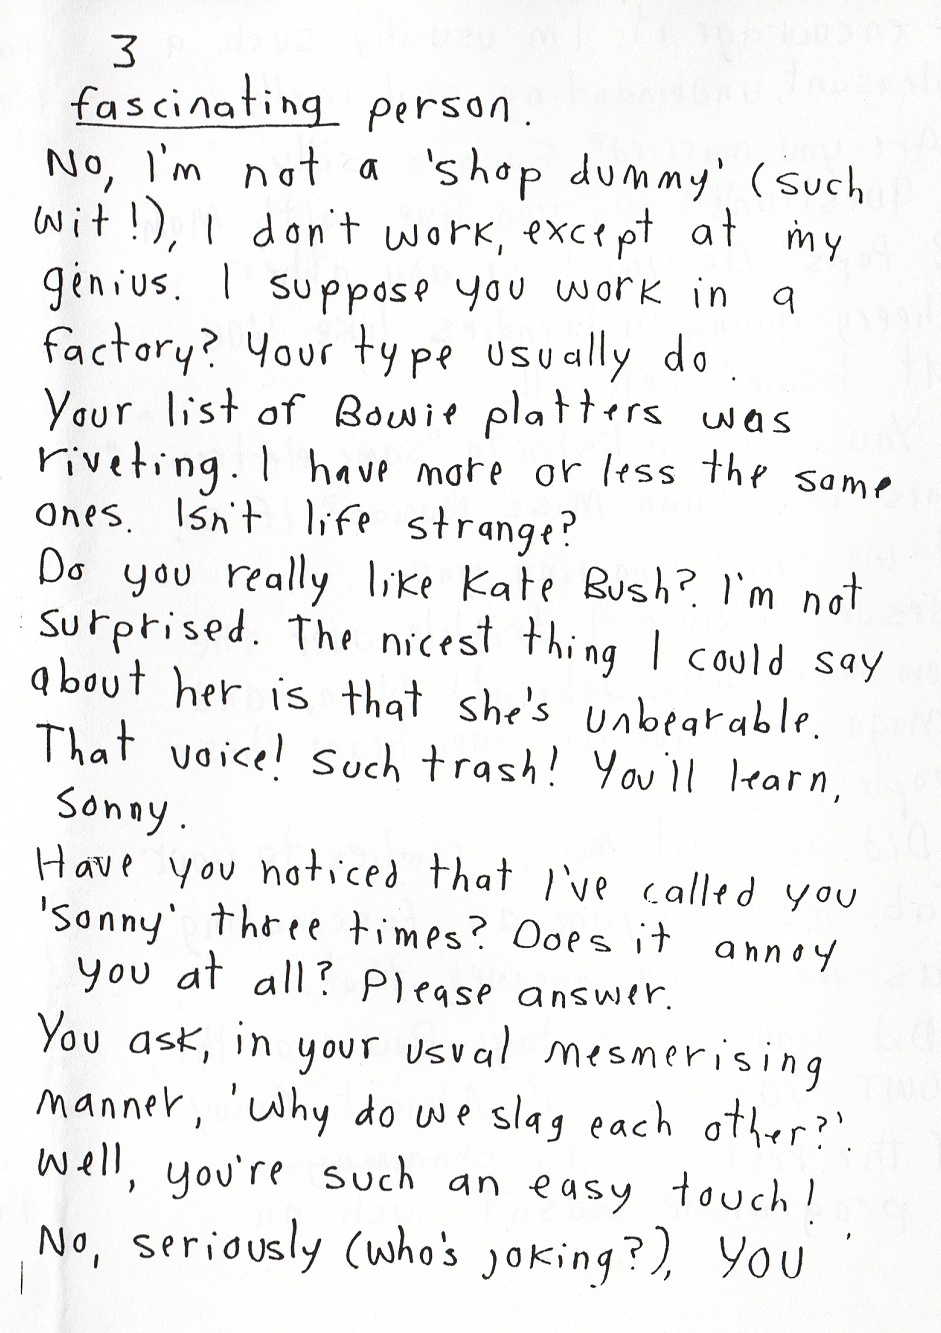 3
fascinating person.
No, I'm not a 'shop dummy' (such
wit!), I don't work, except at my
genius. I suppose you work in a
factory? Your type usually do.
Your list of Bowie platters was
riveting. I have more or less the same
ones. Isn't life strange?
Do you really like Kate Bush? I'm not
surprised. The nicest thing I could say
about her is that she's unbearable.
That voice! Such trash! You'll learn,
sonny.
Have you noticed that I've called you
'sonny' three times? Does it annoy
you at all? Please answer.
You ask, in your usual mesmerising
manner, 'Why do we slag each other?'.
Well, you're such an easy touch!
No, seriously (who's joking?), you